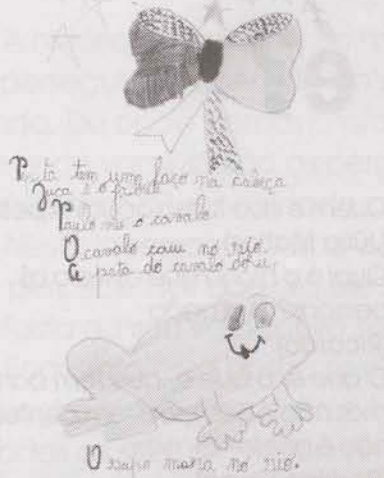 tem um laço na cabeça
Juca é o
Paulo viu o cavalo
O cavalo caiu no rio.
A pata do cavalo doeu
O sapo mora no rio.